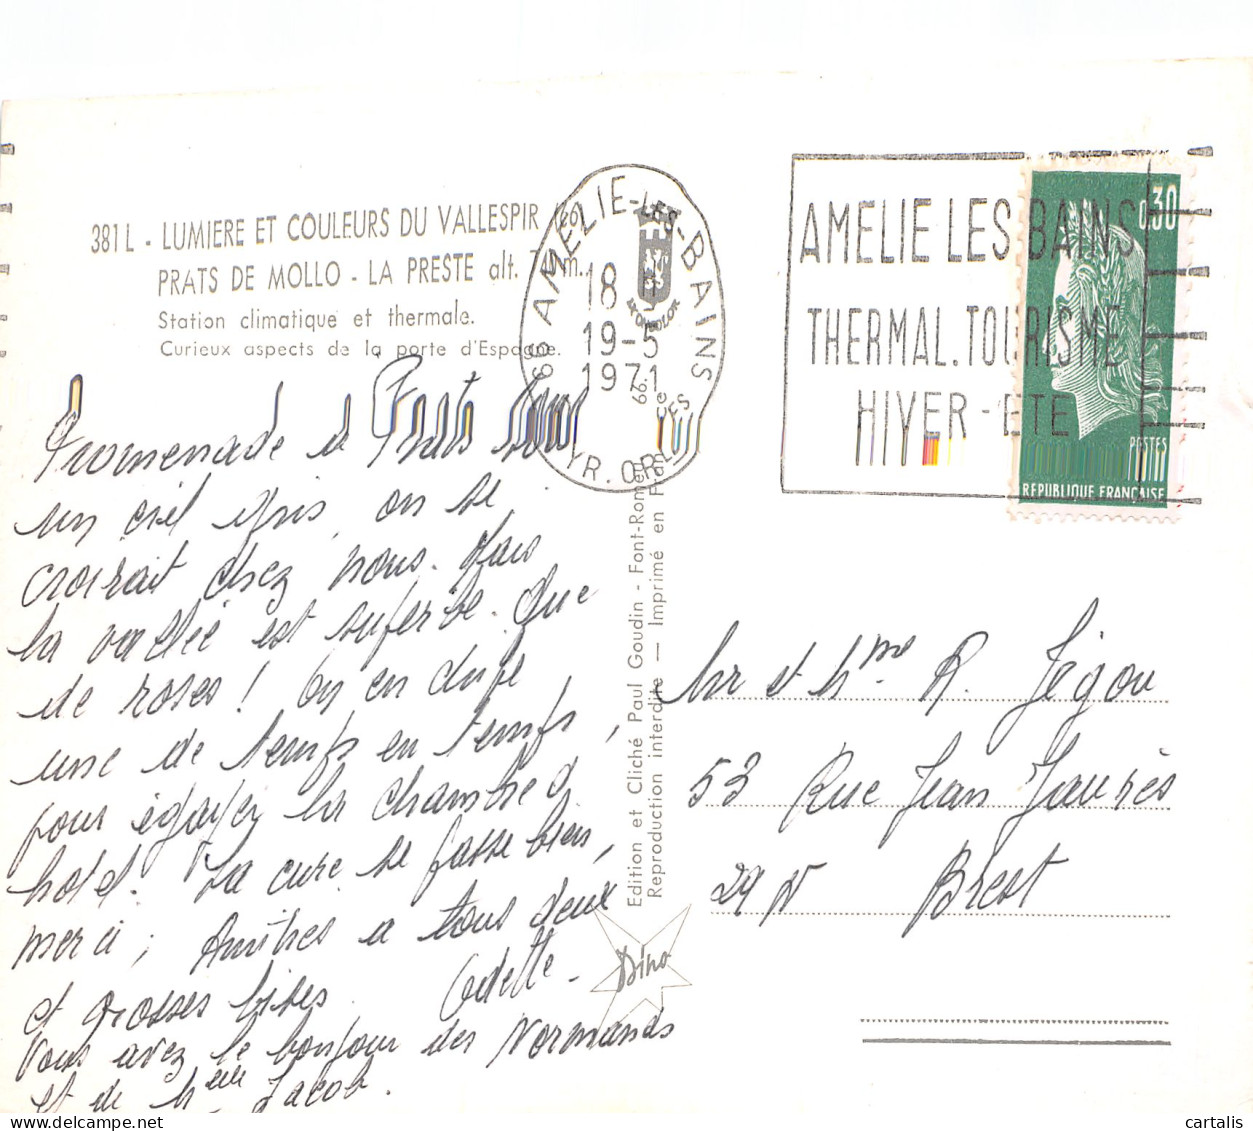 381 L - LUMIERE ET COULEURS DU VALLESPIR
PRATS DE MOLLO - LA PRESTE alt. m.
Station climatique et thermale.
Curieux aspects de la porte d'Espagne.
66 AMELIE-LES-BAINS
18 H
19-5
1971
PYR. ORLES
AMELIE LES BAINS
THERMAL.TOURISME
HIVER - ETE
0,30
POSTES
REPUBLIQUE FRANCAISE
Promenade à Prats sous
un ciel gris, on se
croirait chez nous. Mais
la vallée est superbe. Que
de roses! On en
une de temps en temps,
pour égayer la chambre d'
hotel. La cure se passe bien,
merci; Amitiés a tous deux
et grosses bises. Odette -
Vous avez le bonjour des Normands
et de Jacob.
Edition et Cliché Paul Goudin - Font-Romeu
Reproduction interdite — Imprimé en
Dino
Mr et Mme R. Jégou
53 Rue Jean Jaurès
29 N Brest
cartalis